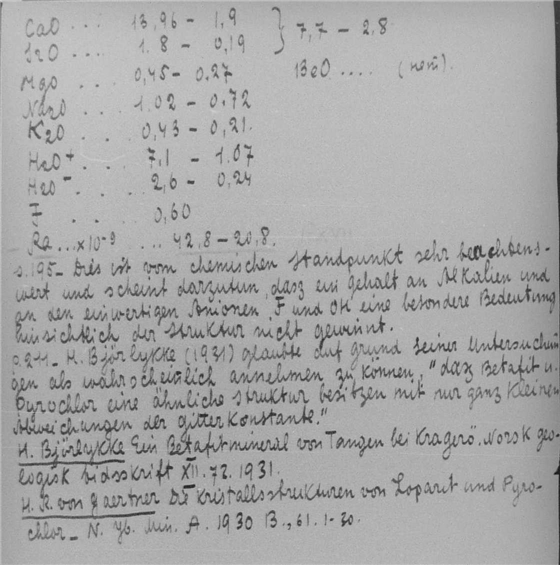 CaO .... 13,96 - 1,9 } 7,7 - 2,8
SrO .... 1.8 - 0,19
MgO ... 0,45 - 0.27 BeO .... (нет).
Na2O .... 1.02 - 0.72
K2O ... 0,43 - 0,21.
H2O+ .... 7,1 - 1.07
H2O- .... 2,6 - 0,24
F .... 0,60
Ra ...x10-9 .... 42,8 - 20,8.
s.195- Dies ist vom chemischen Standpunkt sehr beachtens-
wert und scheint darzutun, dasz ein Gehalt an Alkalien und
an den einwertigen Anionen F und OH eine besondere Bedeutung
hinsichtlich der Struktur nicht gewinnt.
s.211- H. Björlykke (1931) glaubte auf Grund seiner Untersuchun
gen als wahrscheinlich annehmen zu können, "dasz Betafit u.
Pyrochlor eine ähnliche Struktur besitzen mit nur ganz kleinen
Abweichungen der Gitterkonstante."
H. Björlykke Ein Betafitmineral von Tangen bei Kragerö. Norsk geo-
logisk tidsskrift XII. 72. 1931.
H. R. von Gaertner Die Kristallsstrukturen von Loparit und Pyro-
chlor - N. Jb. Min. A. 1930 B., 61. 1-30.